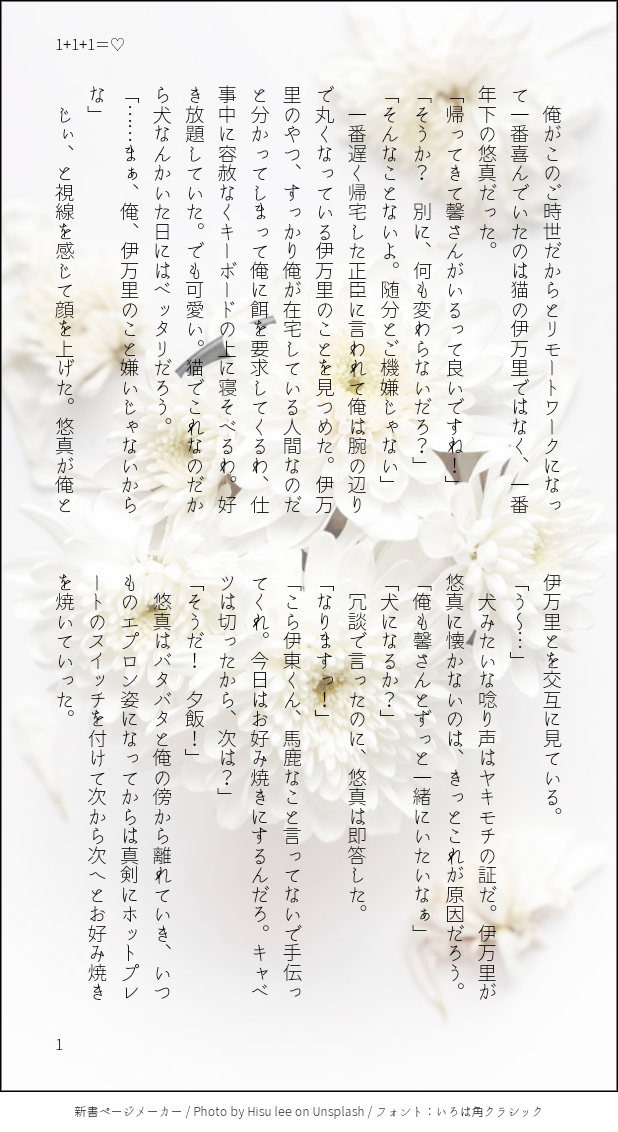 1+1+1＝♡
　俺がこのご時世だからとリモートワークになっ
て一番喜んでいたのは猫の伊万里ではなく、一番
年下の悠真だった。
「帰ってきて馨さんがいるって良いですね！」
「そうか？　別に、何も変わらないだろ？」
「そんなことないよ。随分とご機嫌じゃない」
　一番遅く帰宅した正臣に言われて俺は腕の辺り
で丸くなっている伊万里のことを見つめた。伊万
里のやつ、すっかり俺が在宅している人間なのだ
と分かってしまって俺に餌を要求してくるわ、仕
事中に容赦なくキーボードの上に寝そべるわ。好
き放題していた。でも可愛い。猫でこれなのだか
ら犬なんかいた日にはベッタリだろう。
「……まぁ、俺、伊万里のこと嫌いじゃないから
な」
　じぃ、と視線を感じて顔を上げた。悠真が俺と
伊万里とを交互に見ている。
「う〜…」
　犬みたいな唸り声はヤキモチの証だ。伊万里が
悠真に懐かないのは、きっとこれが原因だろう。
「俺も馨さんとずっと一緒にいたいなぁ」
「犬になるか？」
　冗談で言ったのに、悠真は即答した。
「なりますっ！」
「こら伊東くん、馬鹿なこと言ってないで手伝っ
てくれ。今日はお好み焼きにするんだろ。キャベ
ツは切ったから、次は？」
「そうだ！　夕飯！」
　悠真はバタバタと俺の傍から離れていき、いつ
ものエプロン姿になってからは真剣にホットプレ
ートのスイッチを付けて次から次へとお好み焼き
を焼いていった。
1
新書ページメーカー / Photo by Hisu lee on Unsplash / フォント：いろは角クラシック